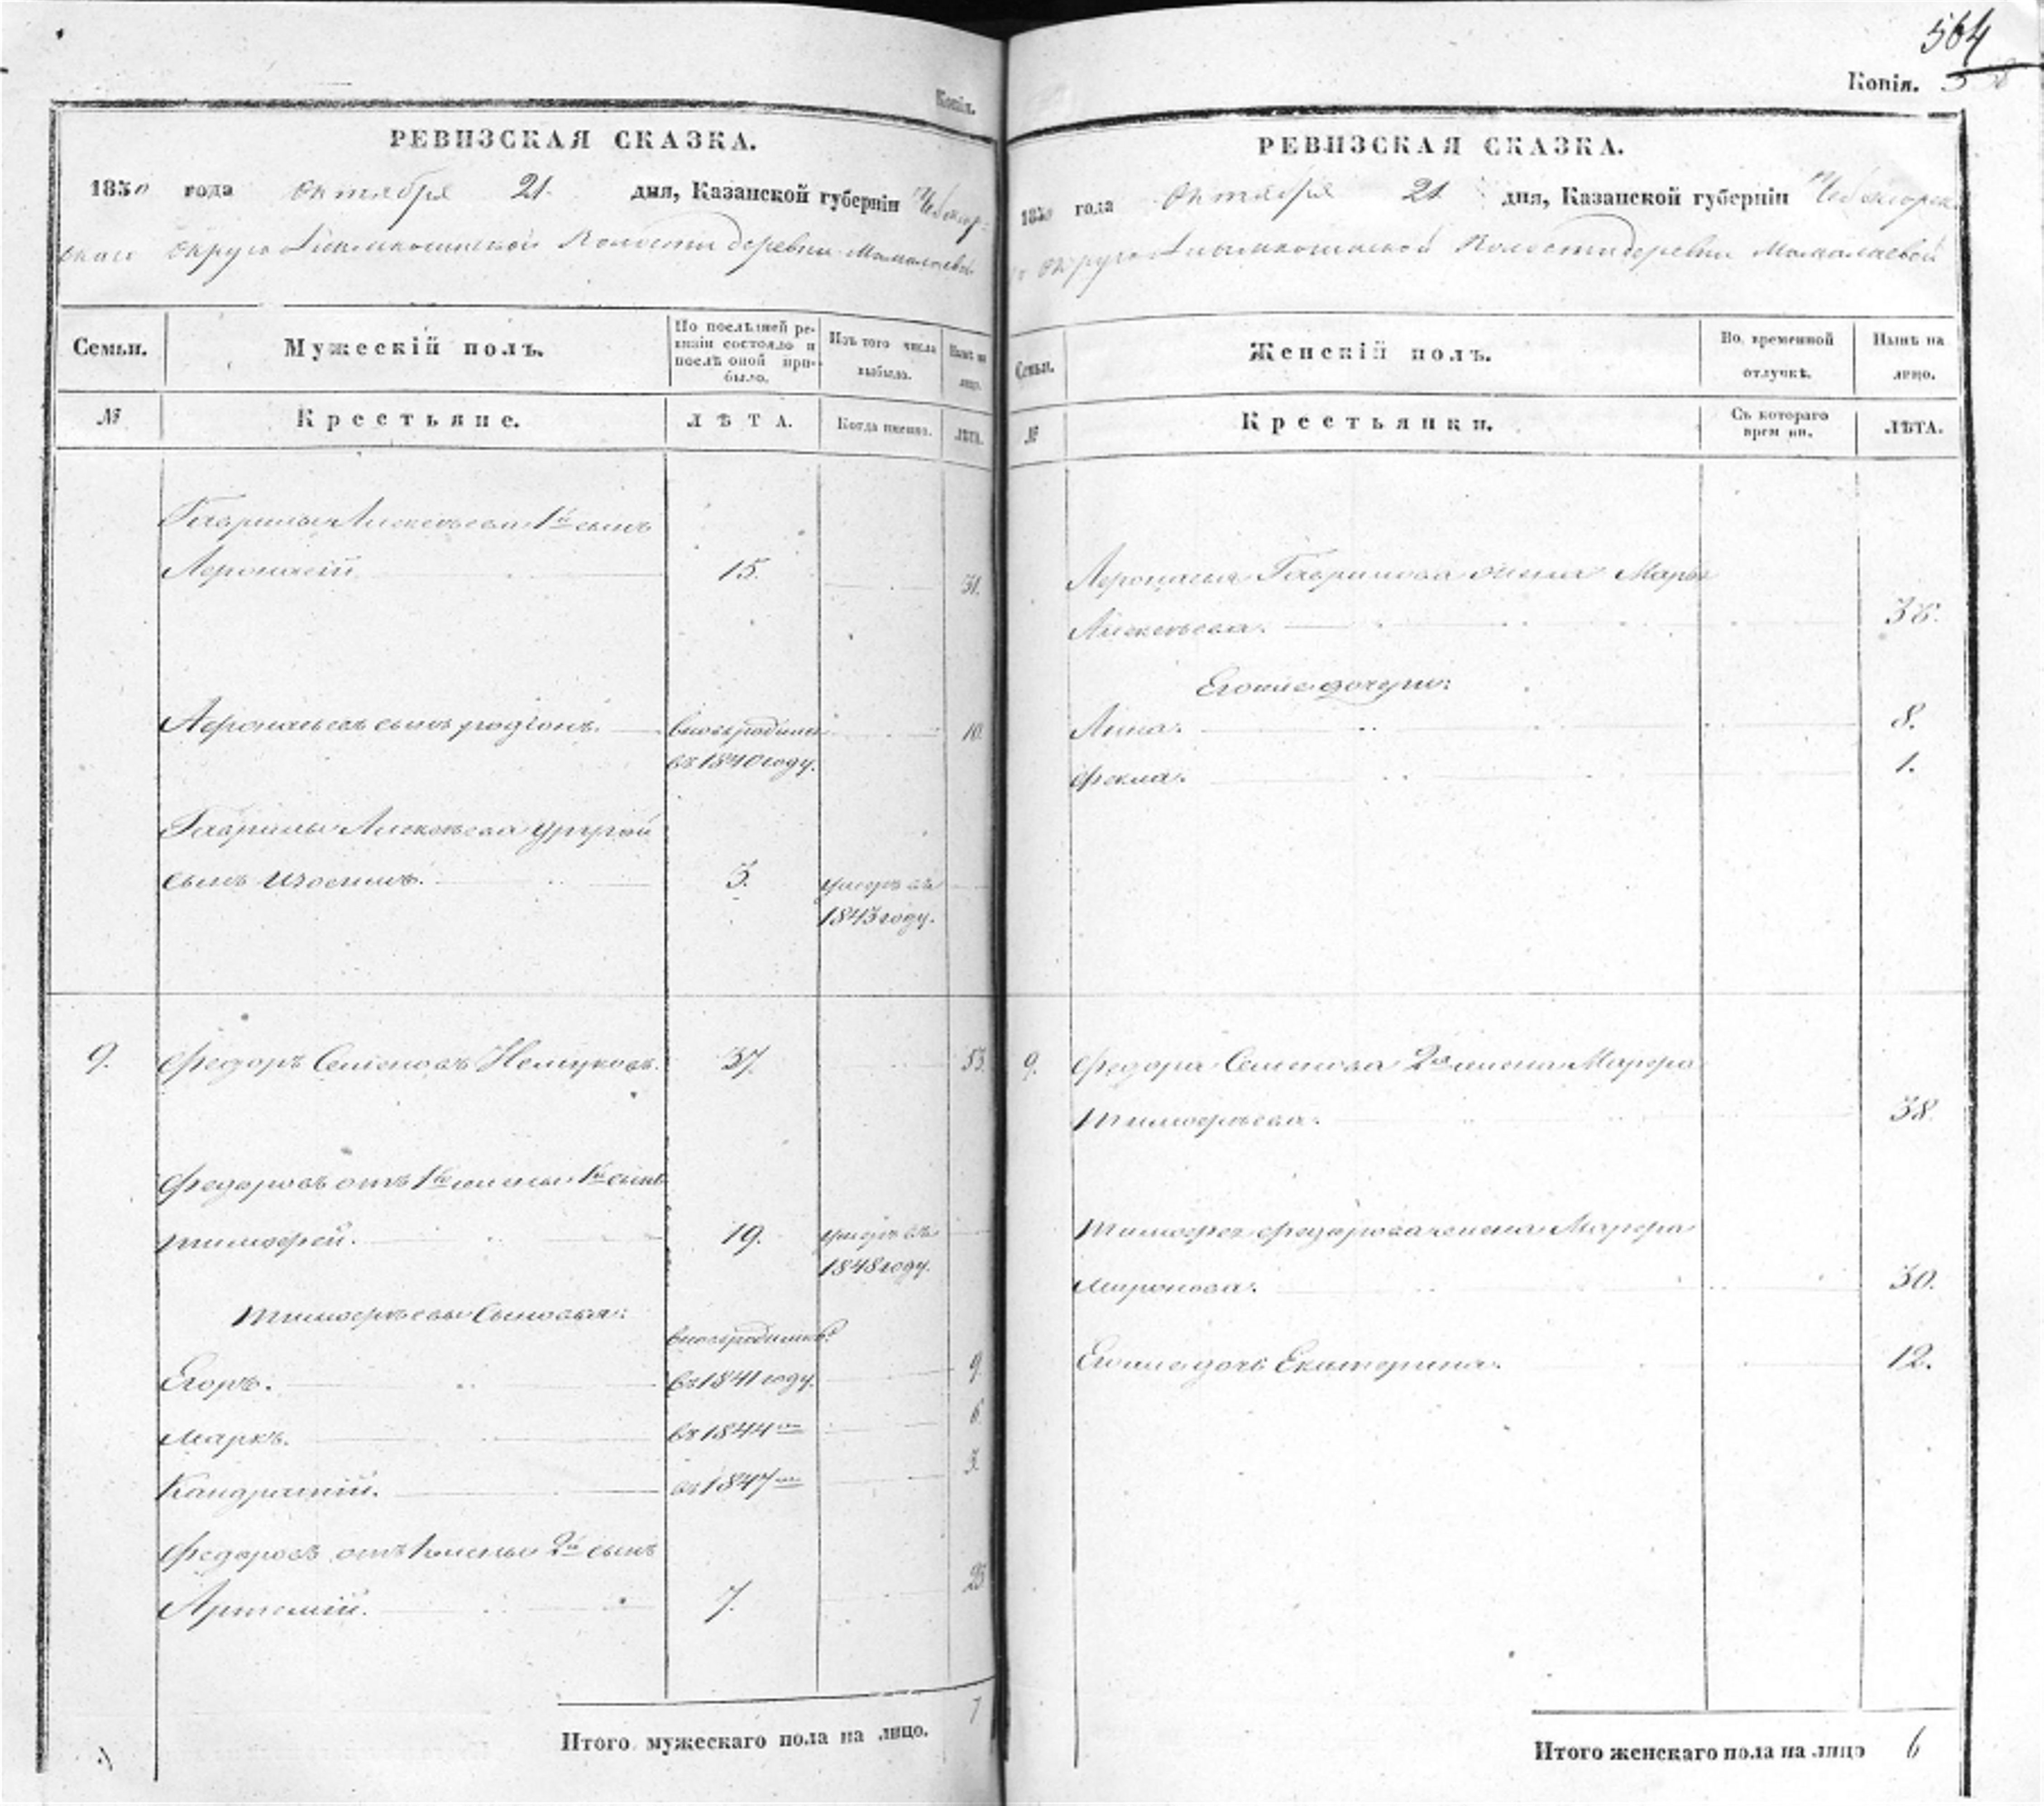 564
Копія.
РЕВИЗСКАЯ СКАЗКА.
1850 года Октября 21. дня, Казанской губерніи Чебоксар-
скаго Округа Волости деревни
Семьи.
Мужескій полъ.
По послѣдней ре-
визіи состояло и
послѣ оной при-
было.
Изъ того числа
выбыло.
Нынѣ на
лицо.
№
Крестьяне.
ЛѢТА.
Когда именно.
ЛѢТА.
Гаврилы Алексѣева 1й сынъ
Афонасій 15. 31.
Афонасьевъ сынъ родіонъ. вновь родился 10.
въ 1840 году.
Гаврилы Алексѣева другой
сынъ 3. умеръ въ
1843 году.
9. Федоръ Семеновъ 37. 53.
Федоровъ отъ 1й жены 1й сынъ
тимофей. 19. умеръ въ
1848 году.
тимофѣевы сыновья:
вновь родились
Егоръ. въ 1841 году. 9.
Маркъ. въ 1844 6.
Кандратій. въ 1847 3.
Федоровъ отъ 1 жены 2й сынъ
Артемій. 7. 23.
Итого мужескаго пола на лицо. 7
Копія.
РЕВИЗСКАЯ СКАЗКА.
1850 года Октября 21 дня, Казанской губерніи Чебоксарска
го Округа Волости деревни
Семьи.
Женскій полъ.
Во временной
отлучкѣ.
Нынѣ на
лицо.
№
Крестьянки.
Съ котораго
времени.
ЛѢТА.
Афонасья Гаврилова жена Марья
Алексѣева. 36.
Его дочери:
Анна. 8.
Фекла. 1.
9. Федора Семенова 2я жена Марфа
тимофѣева. 38.
тимофея федорова жена Марфа
миронова. 30.
Его дочь Екатерина. 12.
Итого женскаго пола на лицо 6